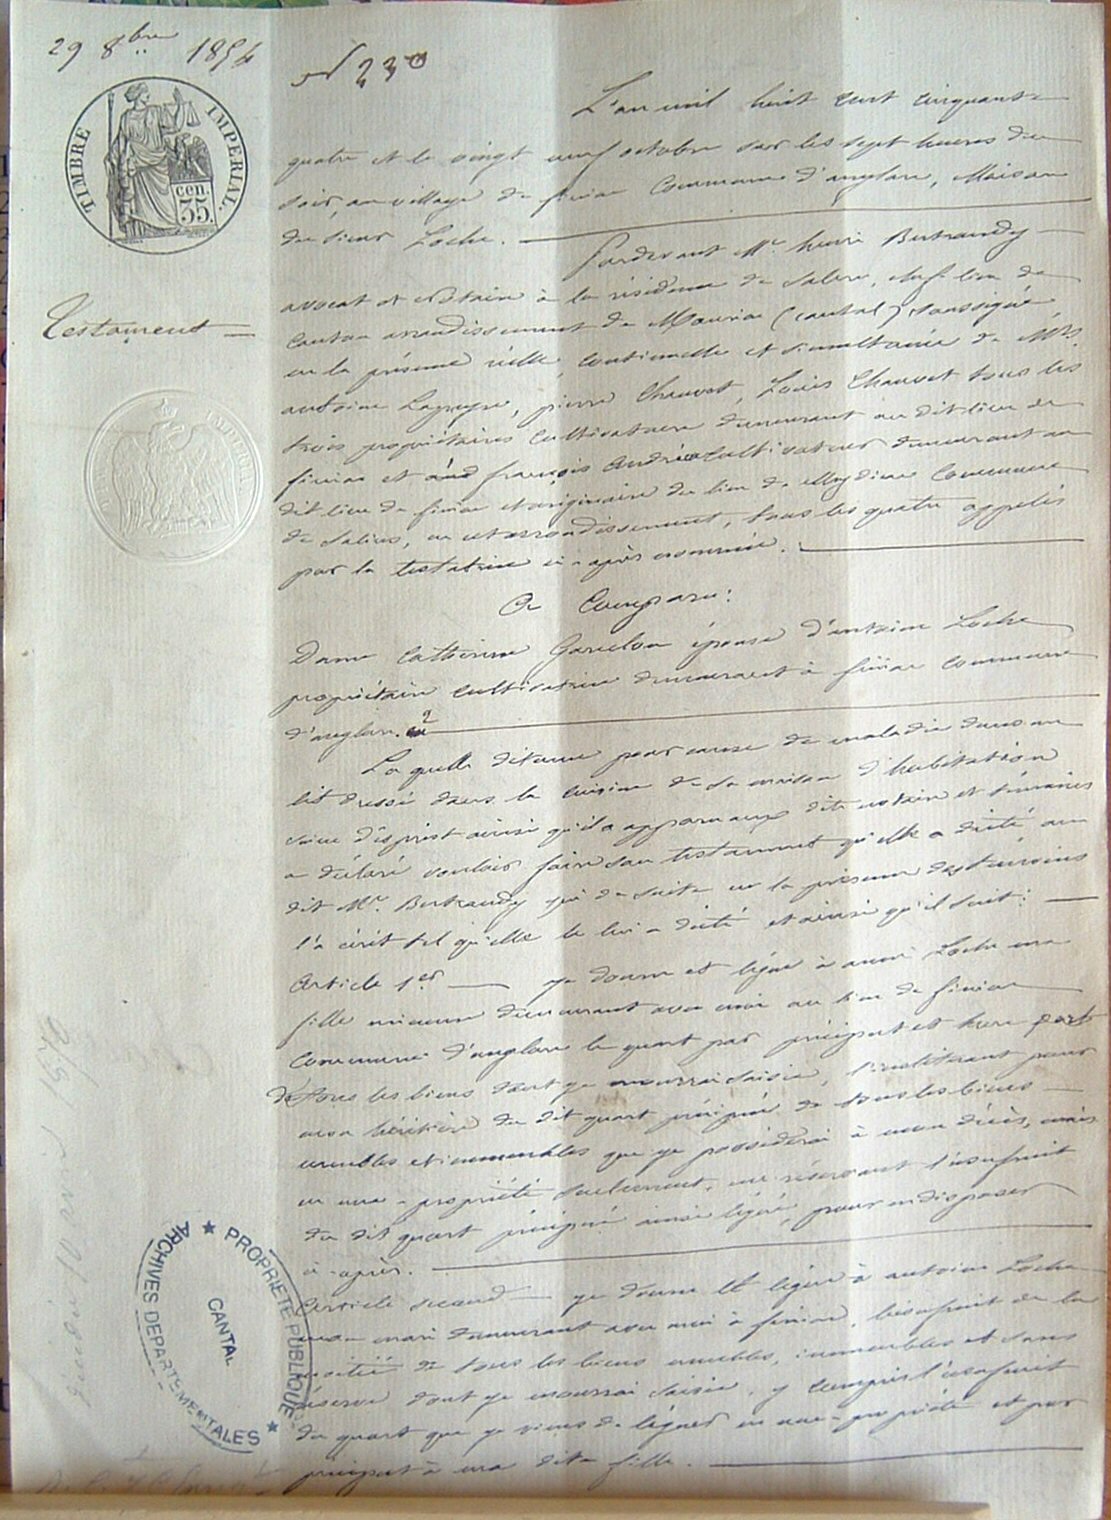 29 8bre 1854
N 230
TIMBRE IMPERIAL.
55 cen.
Testament
L'an mil huit cent cinquante
quatre et le vingt neuf octobre sur les sept heures du
soir, au village de finiac Commune d'anglars, Maison
du sieur Loche.
Pardevant Me henri Bertrandy
avocat et Notaire à la résidence de Salers, chef-lieu de
Canton arrondissement de Mauriac (cantal), soussigné
en la présence réelle, continuelle et simultanée de MM.
antoine, pierre Chauvet, Louis Chauvet tous les
trois propriétaires Cultivateurs demeurant au dit lieu de
finiac et françois Andrieu Cultivateur demeurant au
dit lieu de finiac et originaire du lieu de Commune
de Salins, en cet arrondissement, tous les quatre appelés
par la testatrice ci-après nommée.
A Comparu:
Dame Catherine épouse d'antoine Loche
propriétaire cultivatrice demeurant à finiac Commune
d'anglars.
Laquelle détenue pour cause de maladie dans un
lit dressé dans la cuisine de sa maison d'habitation
saine d'esprit ainsi qu'il a apparu aux dits notaire et témoins
a déclaré vouloir faire son testament qu'elle a dicté au
dit Me. Bertrandy qui de suite en la présence des témoins
l'a écrit tel qu'elle le lui a dicté et ainsi qu'il suit:
Article 1er je donne et lègue à Loche ma
fille mineure demeurant avec moi au lieu de finiac
Commune d'anglars le quart par préciput et hors part
de tous les biens dont je mourrai saisie, l'instituant pour
mon héritière du dit quart précipué de tous les biens
meubles et immeubles que je possèderai à mon décès, mais
en nue-propriété seulement, me réservant l'usufruit
du dit quart précipué ainsi légué, pour en disposer
ci-après.
Article second je donne et lègue à antoine Loche
mon mari demeurant avec moi à finiac, l'usufruit de la
moitié de tous les biens meubles, immeubles et sans
réserve dont je mourrai saisie, y compris l'usufruit
du quart que je viens de léguer en nue-propriété et par
préciput à ma dite fille.
PROPRIETE PUBLIQUE
ARCHIVES DEPARTEMENTALES
CANTAL